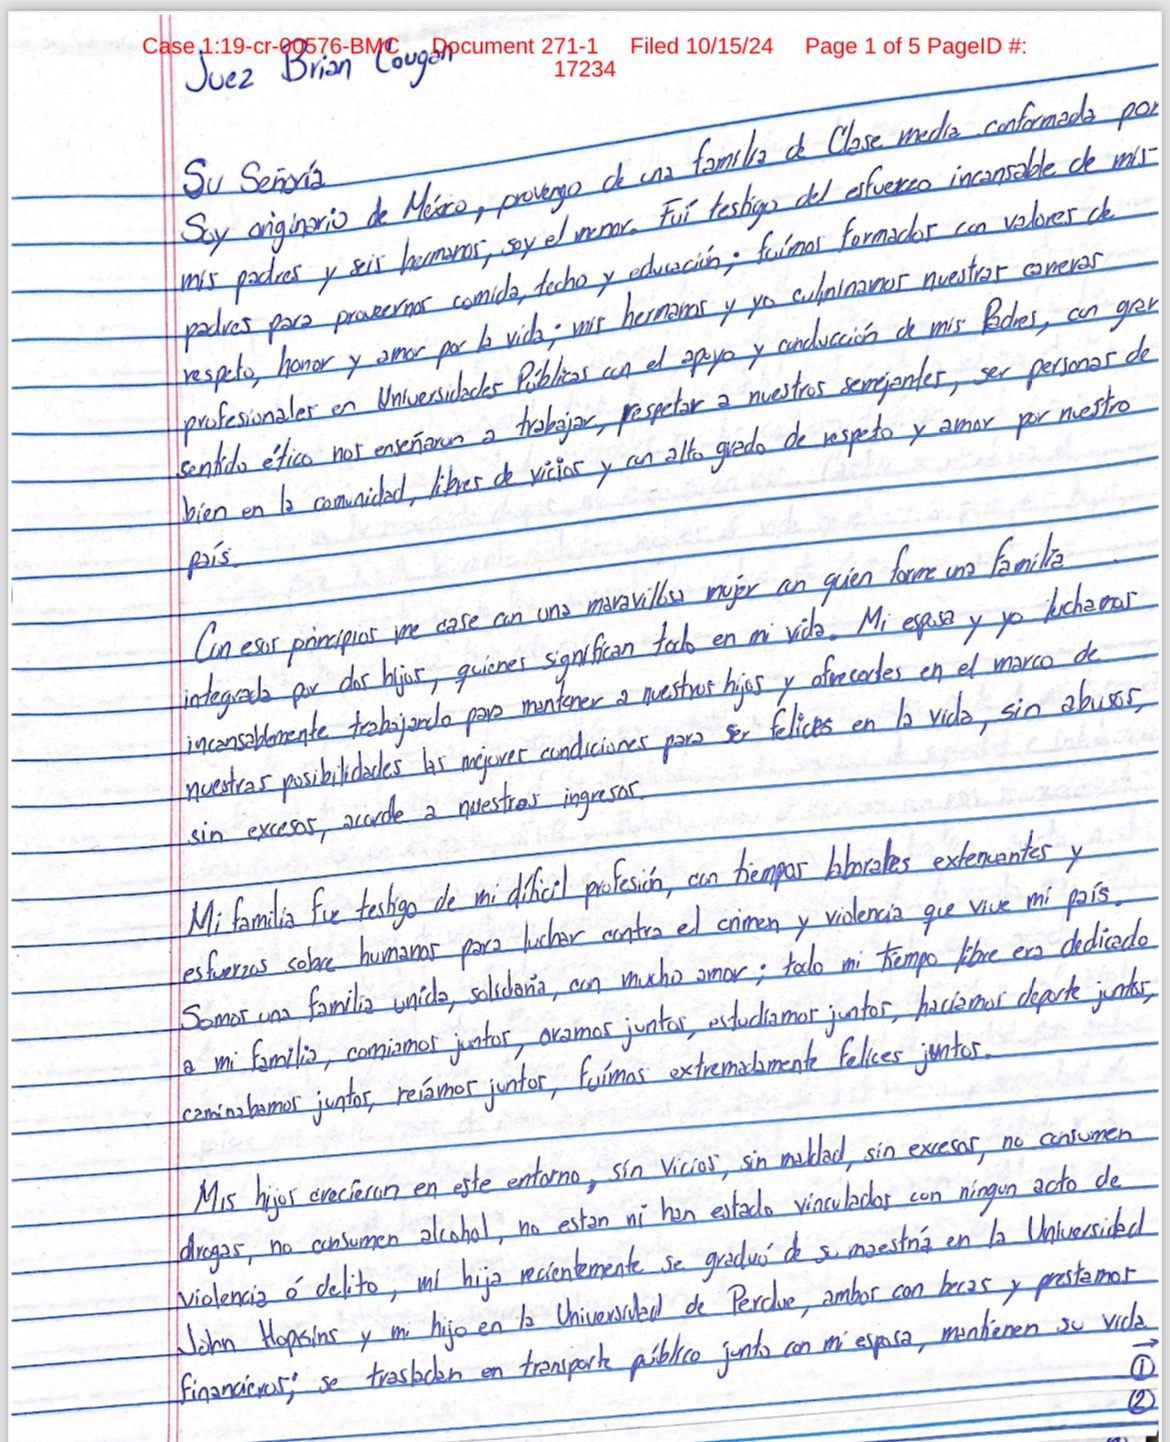 Case 1:19-cr-00576-BMC Document 271-1 Filed 10/15/24 Page 1 of 5 PageID #:
17234
Juez Brian Cougan
Su Señoría
Soy originario de México, provengo de una familia de Clase media conformada por
mis padres y seis hermanos, soy el menor. Fuí testigo del esfuerzo incansable de mis
padres para proveernos comida, techo y educación; fuímos formados con valores de
respeto, honor y amor por la vida; mis hermanos y yo culminamos nuestras carreras
profesionales en Universidades Públicas con el apoyo y conducción de mis Padres, con gran
sentido ético nos enseñaron a trabajar, respetar a nuestros semejantes, ser personas de
bien en la comunidad, libres de vicios y con alto grado de respeto y amor por nuestro
país.
Con esos principios me case con una maravillosa mujer con quien forme una familia
integrada por dos hijos, quienes significan todo en mi vida. Mi esposa y yo luchamos
incansablemente trabajando para mantener a nuestros hijos y ofrecerles en el marco de
nuestras posibilidades las mejores condiciones para ser felices en la vida, sin abusos,
sin excesos, acorde a nuestros ingresos.
Mi familia fue testigo de mi difícil profesión, con tiempos laborales extenuantes y
esfuerzos sobre humanos para luchar contra el crimen y violencia que vive mi país.
Somos una familia unida, solidaria, con mucho amor; todo mi tiempo libre era dedicado
a mi familia, comiamos juntos, oramos juntos, estudiamos juntos, hacíamos deporte juntos,
caminabamos juntos, reíamos juntos, fuímos extremadamente felices juntos.
Mis hijos crecieron en este entorno, sin vicios, sin maldad, sin excesos, no consumen
drogas, no consumen alcohol, no estan ni han estado vinculados con ningun acto de
violencia ó delito, mi hija recientemente se graduó de su maestría en la Universidad
John Hopkins y mi hijo en la Universidad de Perdue, ambos con becas y prestamos
financieros; se trasladan en transporte público junto con mi esposa, mantienen su vida
→
①
②